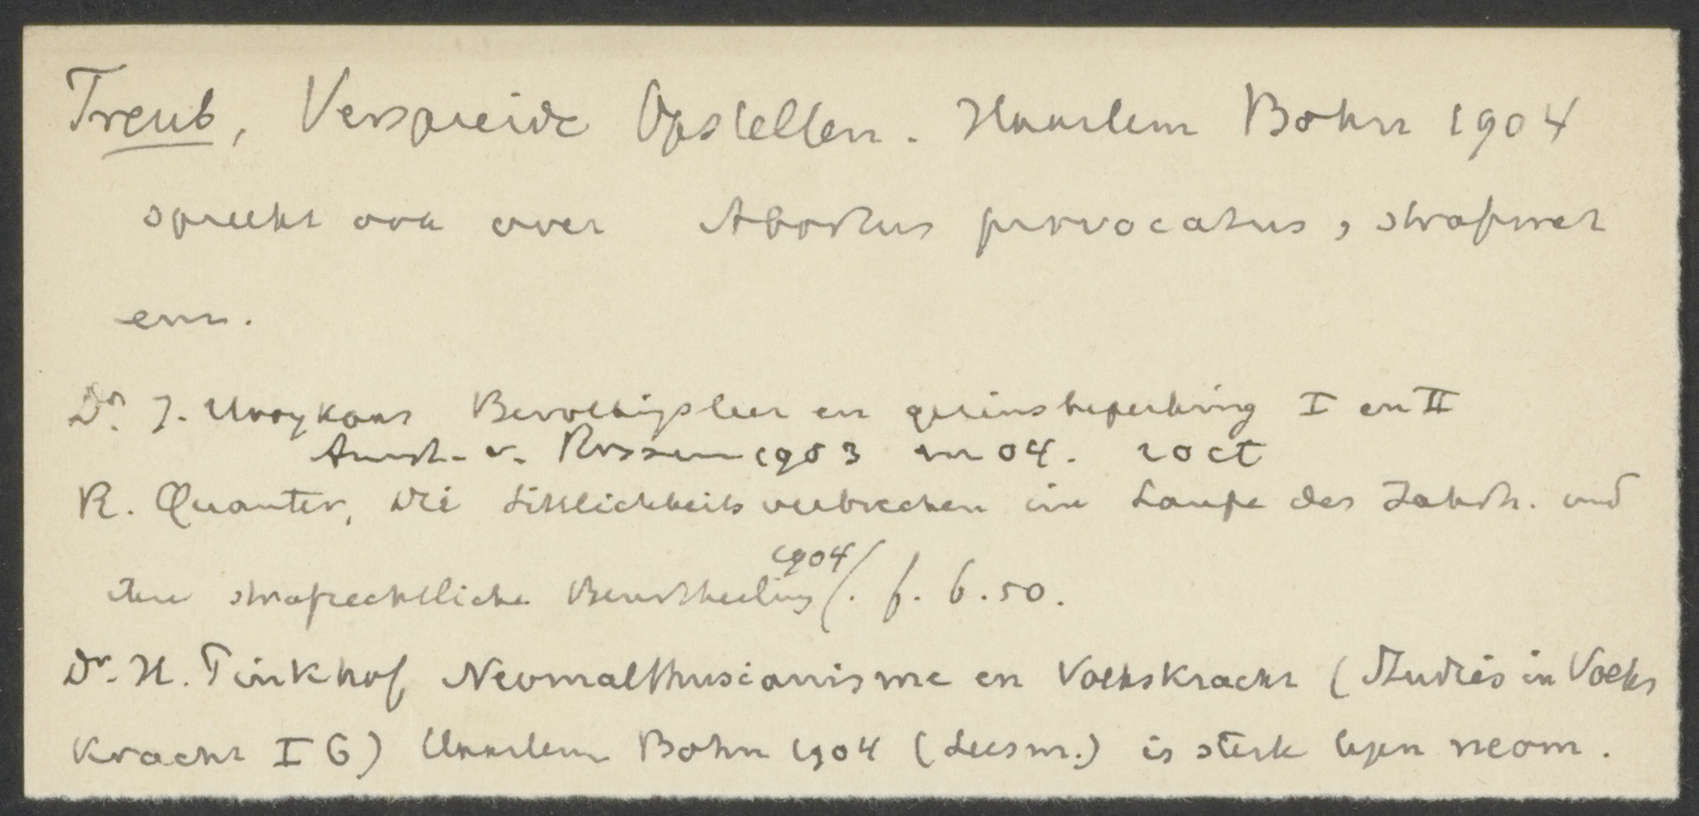 Treub, Verspreide Opstellen. Haarlem Bohn 1904
spreekt ook over Abortus provocatus, strafwet
enz.
Dr. J. Rooykaas Bevolkingsleer en gezinsbeperking I en II
Amst. v. Rossen 1903 en 04. 20 ct
R. Quanter, Die Sittlichkeitsverbrechen im Laufe der Jahrh. und
ihre strafrechtliche Beurtheilung 1904/. f. 6.50.
Dr. H. Pinkhof Neomalthusianisme en Volkskracht (Studies in Volks
kracht I 6) Haarlem Bohn 1904 (Leesm.) is sterk tegen neom.